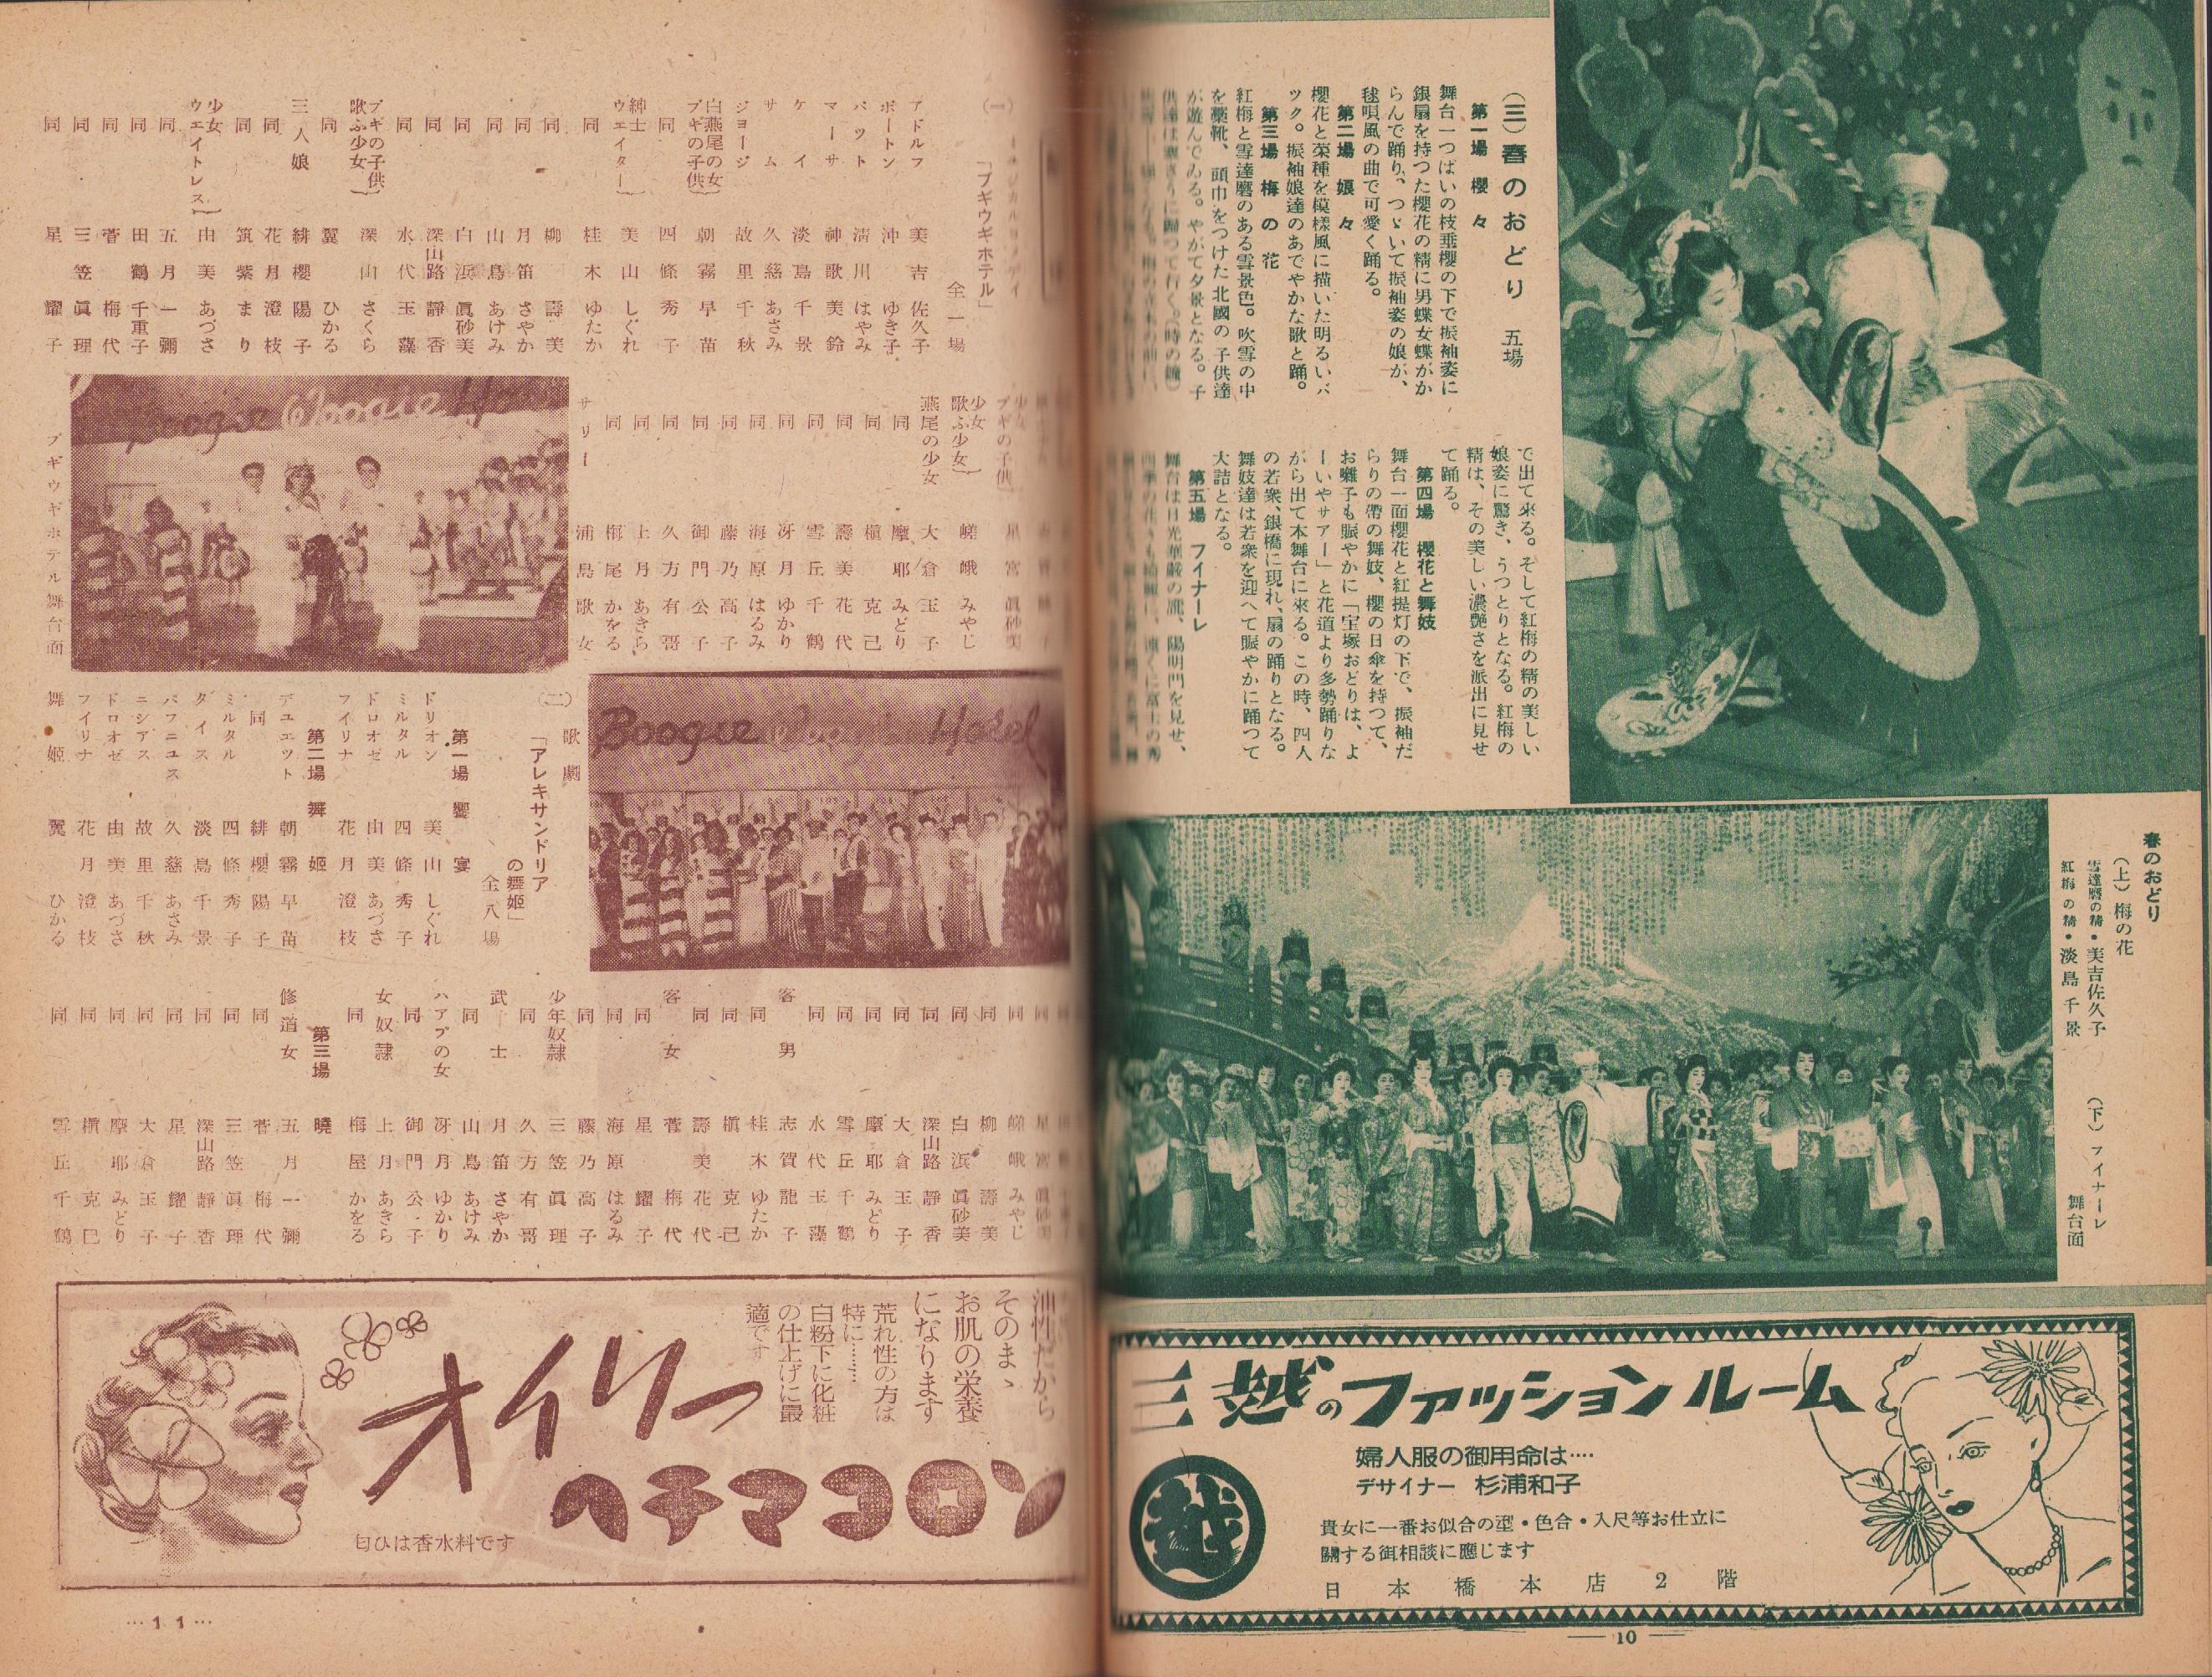 (三) 春のおどり 五場
第一場 櫻々
舞台一つぱいの枝垂櫻の下で振袖姿に
銀扇を持つた櫻花の精に男蝶女蝶がか
らんで踊り、つゞいて振袖姿の娘が、
毬唄風の曲で可愛く踊る。
第二場 娘々
櫻花と菜種を模様風に描いた明るいバ
ック。振袖娘達のあでやかな歌と踊。
第三場 梅の花
紅梅と雪達磨のある雪景色。吹雪の中
を藁靴、頭巾をつけた北國の子供達
が遊んでゐる。やがて夕景となる。子
で出て來る。そして紅梅の精の美しい
娘姿に驚き、うつとりとなる。紅梅の
精は、その美しい濃艶さを派出に見せ
て踊る。
第四場 櫻花と舞妓
舞台一面櫻花と紅提灯の下で、振袖だ
らりの帶の舞妓、櫻の日傘を持つて、
お囃子も賑やかに「宝塚おどりは、よ
ーいやサアー」と花道より多勢踊りな
がら出て本舞台に來る。この時、四人
の若衆、銀橋に現れ、扇の踊りとなる。
舞妓達は若衆を迎へて賑やかに踊つて
大詰となる。
第五場 フイナーレ
春のおどり
(上) 梅の花
雪達磨の精・美吉佐久子
紅梅の精・淡島千景
(下) フイナーレ
舞台面
三越のファッションルーム
婦人服の御用命は‥‥
デザイナー 杉浦和子
貴女に一番お似合の型・色合・入尺等お仕立に
關する御相談に應じます
日本橋本店2階
越
10
(一)
「ブギウギホテル」
全一場
アドルフ 美吉佐久子
ボートン 沖ゆき子
パット 淸川はやみ
マーサ 神歌美鈴
ケイ 淡島千景
サム 久慈あさみ
ジョージ 故里千秋
白燕尾の女
ブギの子供 朝霧早苗
同 四條秀子
紳士
ウェイター 美山しぐれ
同 桂木ゆたか
同 柳壽美
同 月笛さやか
同 山鳥あけみ
同 白浜眞砂美
同 深山路靜香
同 水代玉藻
ブギの子供
歌ふ少女 深山さくら
同 翼ひかる
三人娘 緋櫻陽子
同 花月澄枝
同 筑紫まり
少女
ウェイトレス 由美あづさ
同 五月一彌
同 田鶴千重子
同 菅梅代
同 三笠眞理
同 星耀子
ブギの子供 星宮眞砂美
少女
歌ふ少女 嵯峨みやじ
燕尾の少女 大倉玉子
同 摩耶みどり
同 槇克己
同 壽美花代
同 雪丘千鶴
同 冴月ゆかり
同 海原はるみ
同 藤乃高子
同 御門公子
同 久方有哥
同 上月あきら
同 梅尾かをる
サリー 浦島歌女
Boogie Woogie Hotel
ブギウギホテル舞台面
Boogie Woogie Hotel
(二) 歌劇
「アレキサンドリア
の舞姬」
全八場
第一場 饗宴
ドリオン 美山しぐれ
ミルタル 四條秀子
ドロオゼ 由美あづさ
フイリナ 花月澄枝
第二場 舞姬
デユエツト 朝霧早苗
同 緋櫻陽子
ミルタル 四條秀子
タイス 淡島千景
パフニユス 久慈あさみ
ニシアス 故里千秋
ドロオゼ 由美あづさ
フイリナ 花月澄枝
舞姬 翼ひかる
同 星宮眞砂美
同 嵯峨みやじ
同 柳壽美
同 白浜眞砂美
同 深山路靜香
同 大倉玉子
同 摩耶みどり
同 雪丘千鶴
同 水代玉藻
客男 志賀龍子
同 桂木ゆたか
同 槇克己
同 壽美花代
客女 菅梅代
同 星耀子
同 海原はるみ
同 藤乃高子
少年奴隷 三笠眞理
同 久方有哥
武士 月笛さやか
同 山鳥あけみ
ハアプの女 冴月ゆかり
同 御門公子
女奴隷 上月あきら
同 梅屋かをる
第三場 曉
修道女 五月一彌
同 菅梅代
同 三笠眞理
同 深山路靜香
同 星耀子
同 大倉玉子
同 摩耶みどり
同 槇克己
同 雪丘千鶴
油性だから
そのまゝ
お肌の栄養
になります
荒れ性の方は
特に‥‥‥
白粉下に化粧
の仕上げに最
適です
オイリー
ヘチマコロン
匂ひは香水料です
…11…